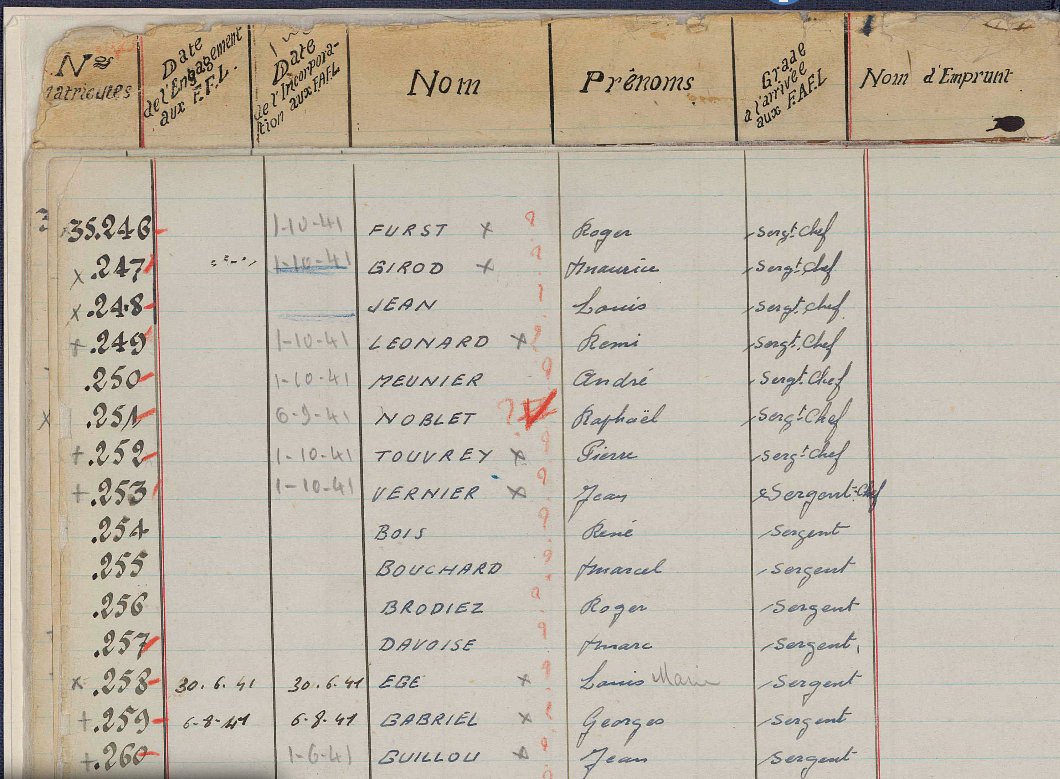 Nos matricules
Date de l'Engagement aux F.F.L.
Date de l'Incorporation aux FAFL
Nom
Prénoms
Grade à l'arrivée aux F.A.F.L
Nom d'Emprunt
35.246 1-10-41 FURST x Roger Sergt Chef
x .247 1-10-41 GIROD x Maurice Sergt Chef
x .248 JEAN Louis Sergt Chef
+ .249 1-10-41 LEONARD x Remi Sergt Chef
.250 1-10-41 MEUNIER André Sergt Chef
x .251 6-9-41 NOBLET Raphaël Sergt Chef
+ .252 1-10-41 TOUVREY x Pierre Sergt Chef
+ .253 1-10-41 VERNIER x Jean Sergent-Chef
.254 BOIS René Sergent
.255 BOUCHARD Marcel Sergent
.256 BRODIEZ Roger Sergent
.257 DAVOISE Marc Sergent
x .258 30.6.41 30.6.41 EBE x Louis Marie Sergent
+ .259 6-8-41 6.8.41 GABRIEL x Georges Sergent
+ .260 1-6-41 GUILLOU x Jean Sergent